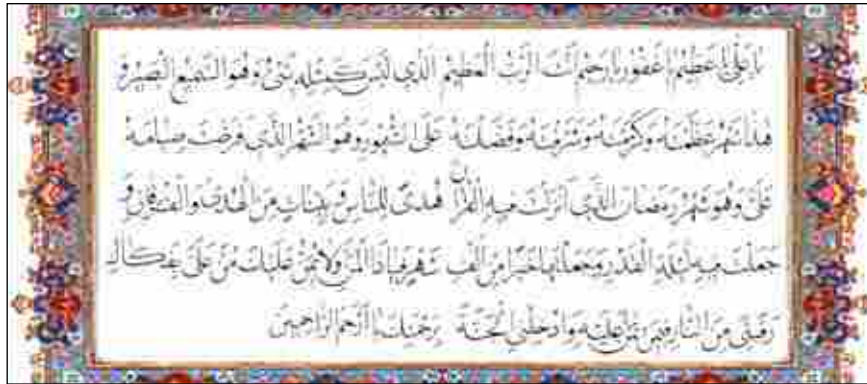 يا علي يا عظيم يا غفور يا رحيم أنت الرب العظيم الذي ليس كمثله شيء وهو السميع البصير و
هذا شهر عظمته وكرمته وشرفته وفضلته على الشهور وهو الشهر الذي فرضت صيامه
علي وهو شهر رمضان الذي أنزلت فيه القرآن هدى للناس وبينات من الهدى والفرقان و
جعلت فيه ليلة القدر وجعلتها خيرا من ألف شهر فيا ذا المن ولا يمن عليك من علي بفكاك
رقبتي من النار فيمن تمن عليه وادخلني الجنة برحمتك يا أرحم الراحمين